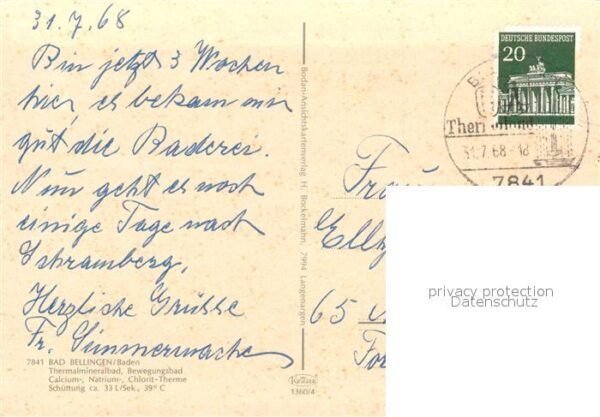 31.7.68
Bin jetzt 3 Wochen
hier, es bekam mir
gut die Baderei.
Nun geht es noch
einige Tage nach
Schramberg,
Herzliche Grüsse
Fr.
7841 BAD BELLINGEN/Baden
Thermalmineralbad, Bewegungsbad
Calcium-, Natrium-, Chlorit-Therme
Schüttung ca. 33 L/Sek., 39° C
Bodan-Ansichtskartenverlag H. Bockelmann, 7994 Langenargen
1360/4
DEUTSCHE BUNDESPOST
20
31.7.68-18
7841
Frau
65
privacy protection
Datenschutz